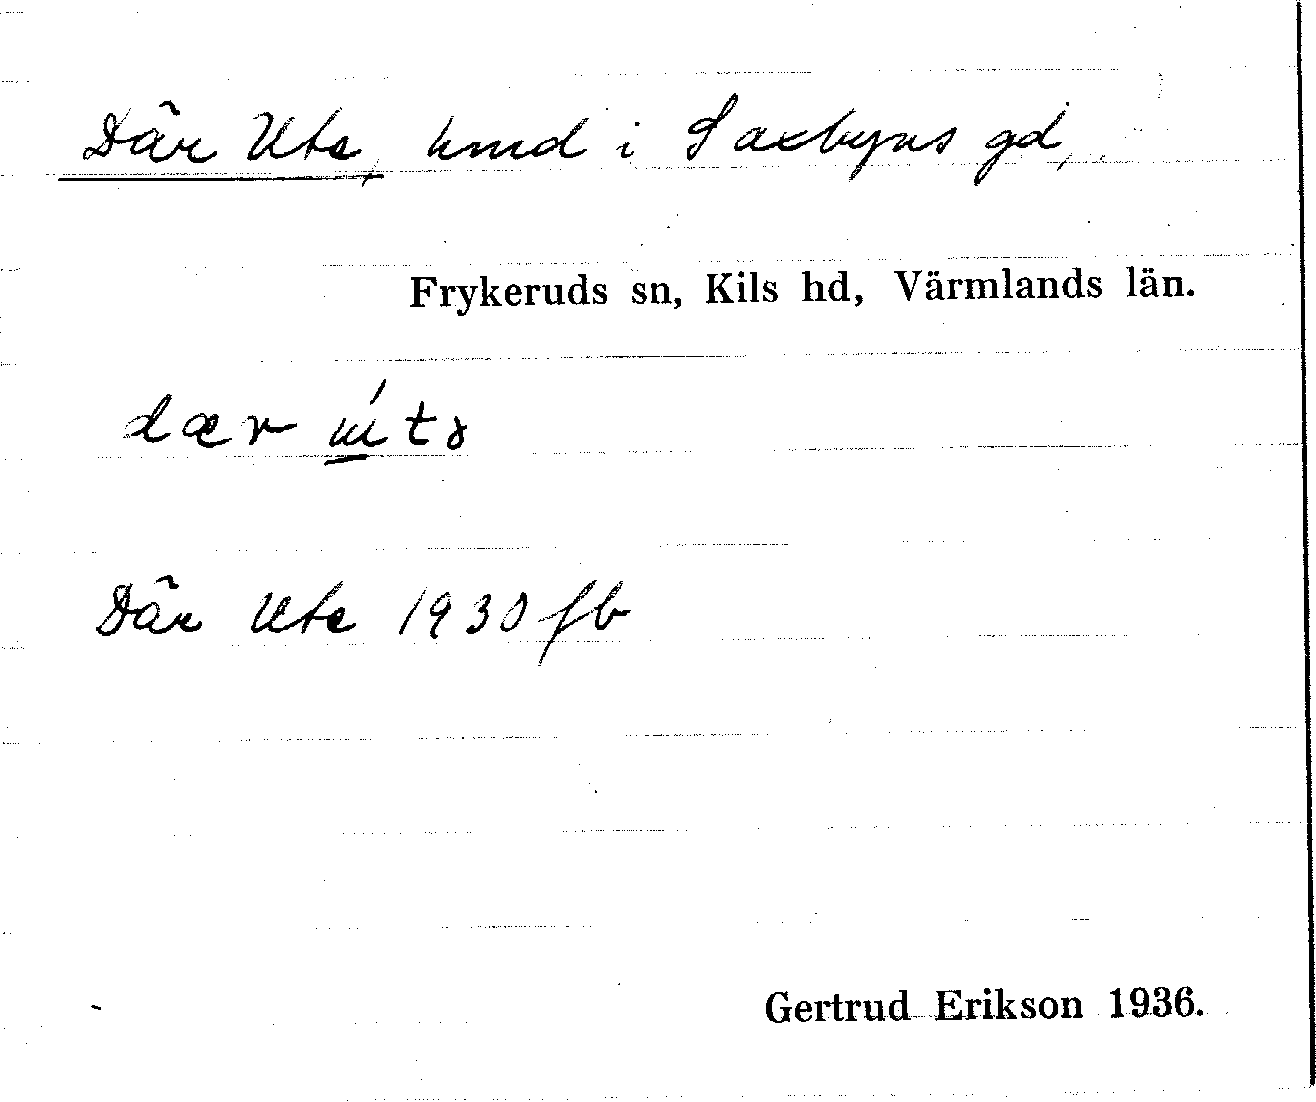 Där Ute, hmd i Saxbyns gd,
Frykeruds sn, Kils hd, Värmlands län.
dær
Där Ute 1930 fb
Gertrud Erikson 1936.